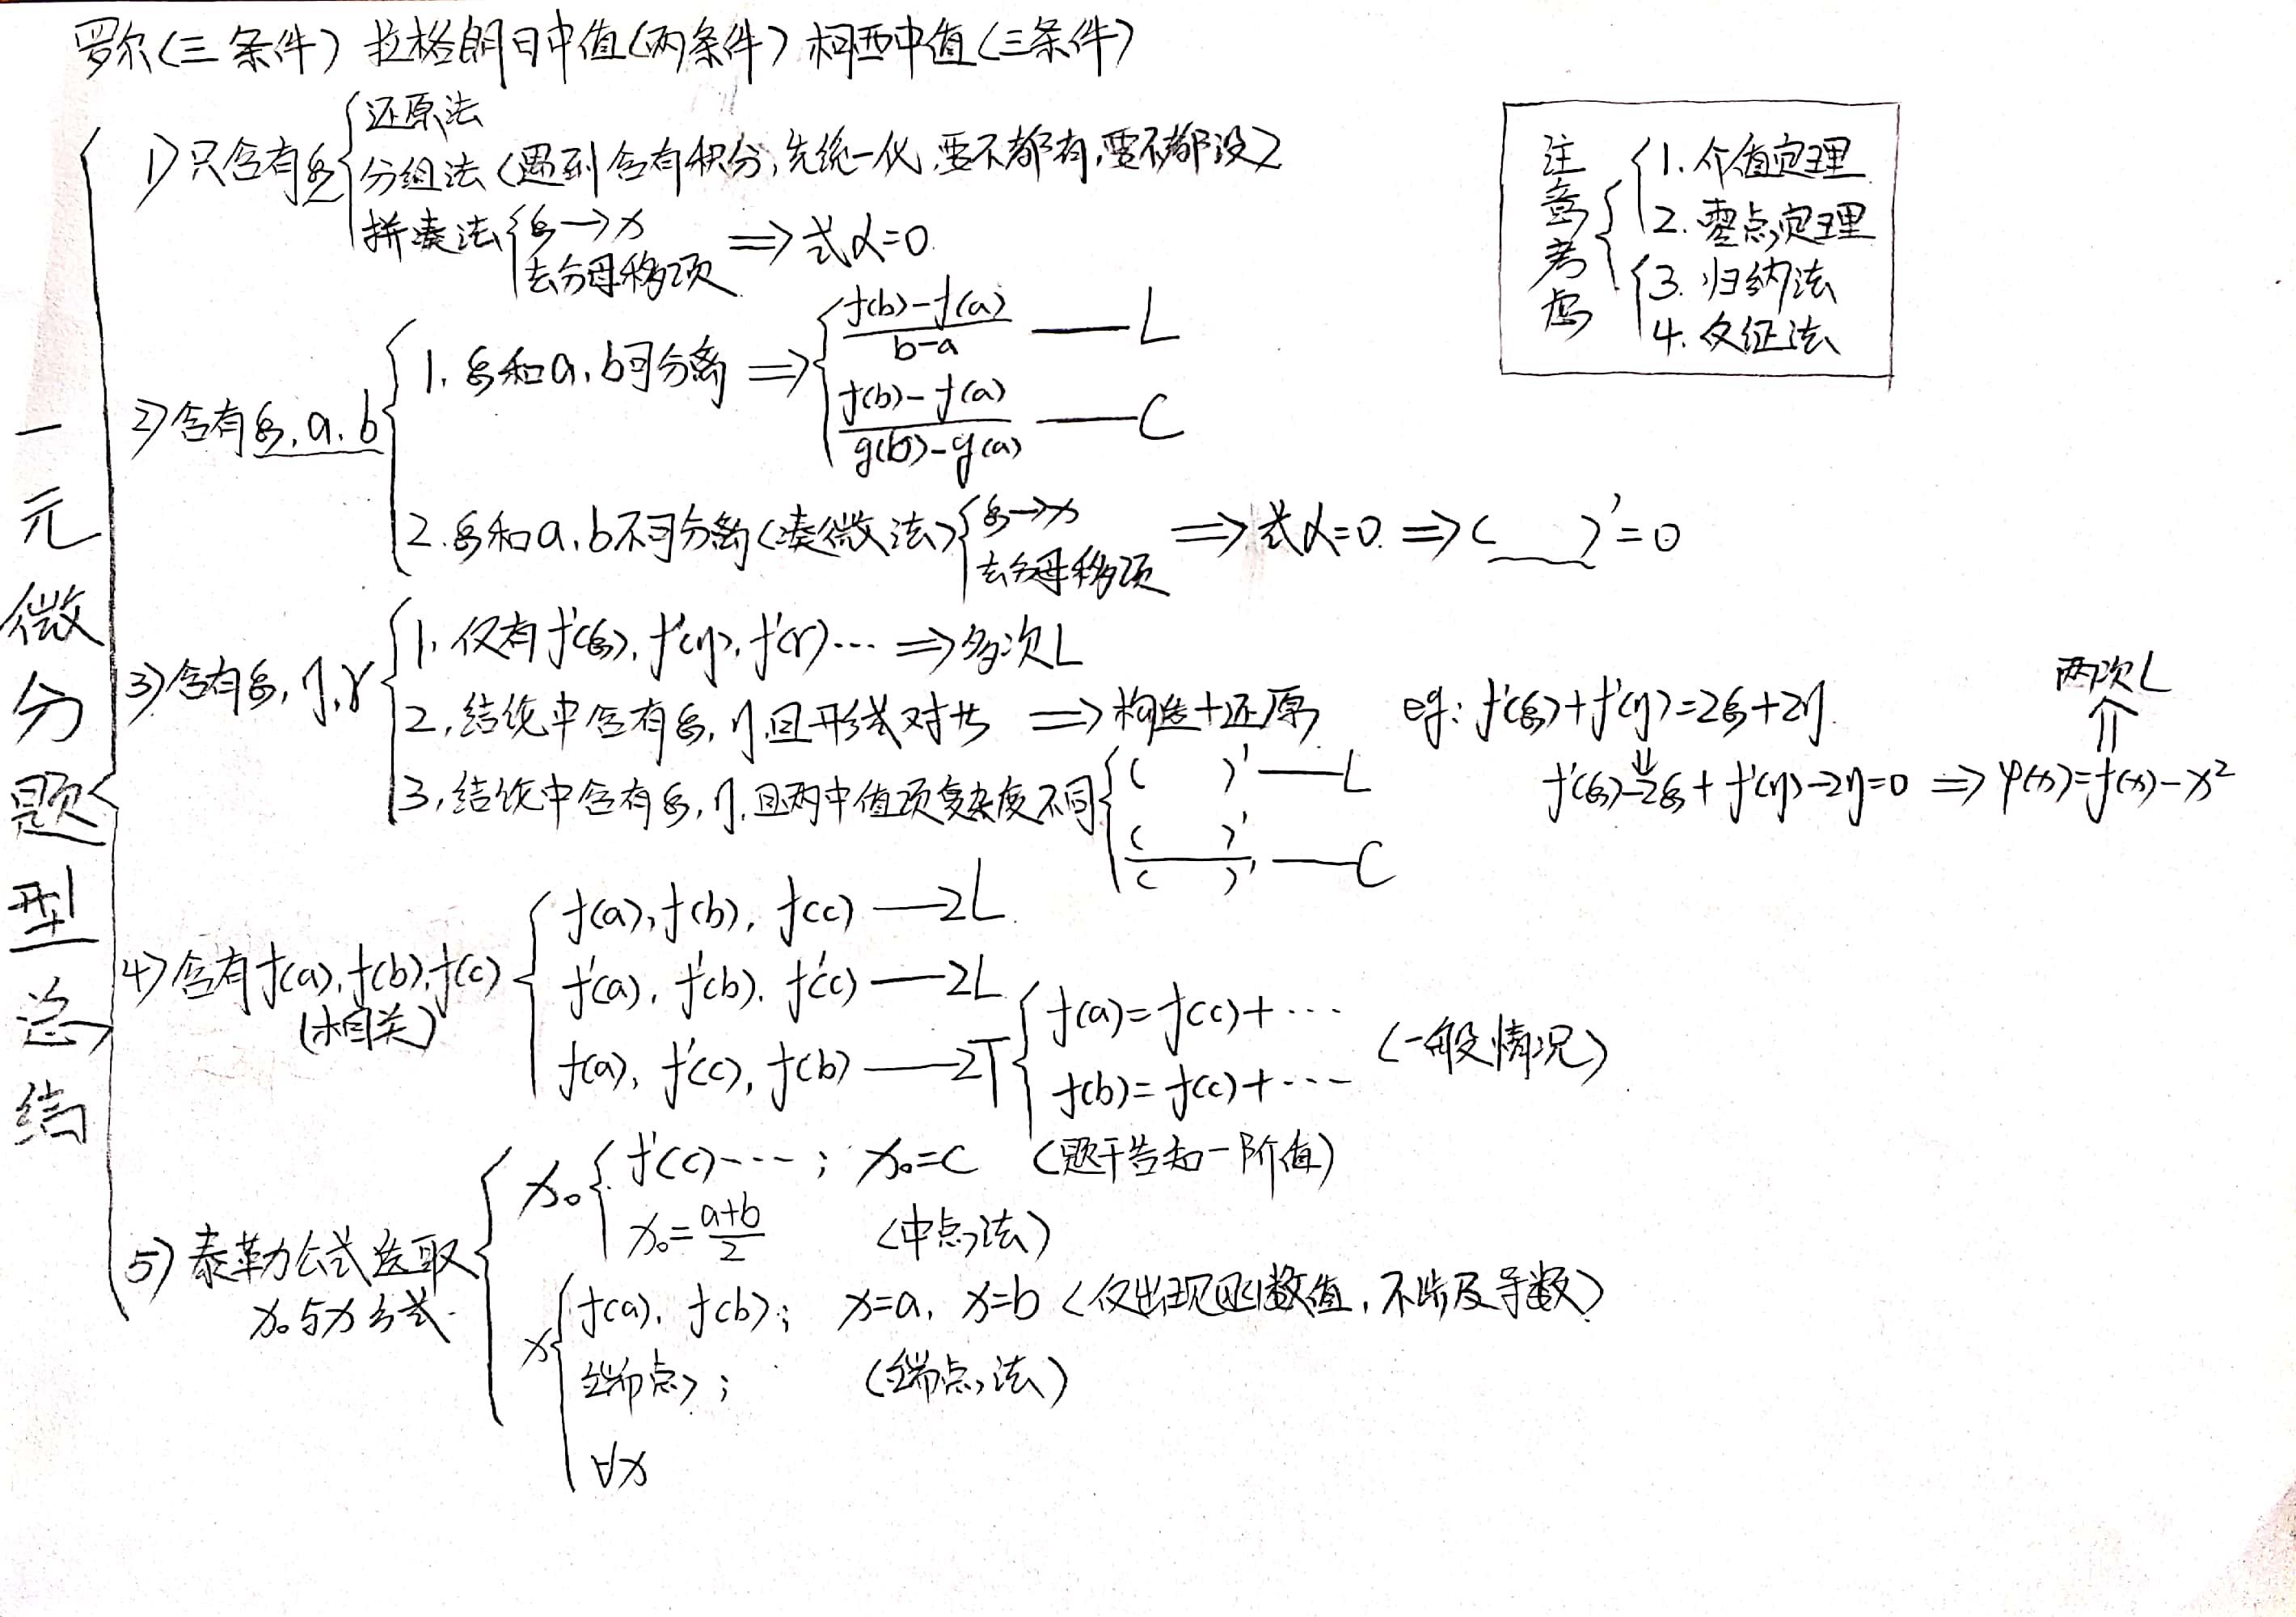 罗尔(三条件) 拉格朗日中值(两条件) 柯西中值(三条件)
一元微分题型总结
1) 只含有ξ
还原法
分组法(遇到含有积分,先统一化,要不都有,要不都没)
拼凑法
ξ→x
去分母移项
⇒ 式α=0.
注意考虑
1. 介值定理
2. 零点定理
3. 归纳法
4. 反证法
2) 含有ξ, a, b
1. ξ和a, b可分离 ⇒
f(b)-f(a)/b-a —— L
f(b)-f(a)/g(b)-g(a) —— C
2. ξ和a, b不可分离(凑微法)
ξ→x
去分母移项
⇒ 式α=0. ⇒ (   )'=0
3) 含有ξ, η, γ
1. 仅有f'(ξ), f'(η), f'(γ)… ⇒ 多次L
2. 结论中含有ξ, η,且形式对块 ⇒ 构造+还原
eg: f'(ξ)+f'(η)=2ξ+2η.
⇓
f'(ξ)-2ξ+f'(η)-2η=0 ⇒ φ(x)=f(x)-x²
⇑
两次L
3. 结论中含有ξ, η,且两中值项复杂度不同
(   )' —— L
(   )'/(   )' —— C
4) 含有f(a), f(b), f(c)
(相关)
f(a), f(b), f(c) —— 2L
f'(a), f'(b), f'(c) —— 2L
f(a), f'(c), f(b) —— 2T
f(a)=f(c)+…
f(b)=f(c)+…
(一般情况)
5) 泰勒公式选取
x₀与x公式.
x₀
f'(c)…; x₀=c (题干告知一阶值)
x₀=a+b/2 (中点法)
x
f(a), f(b); x=a, x=b (仅出现函数值,不涉及导数)
端点; (端点法)
∀x